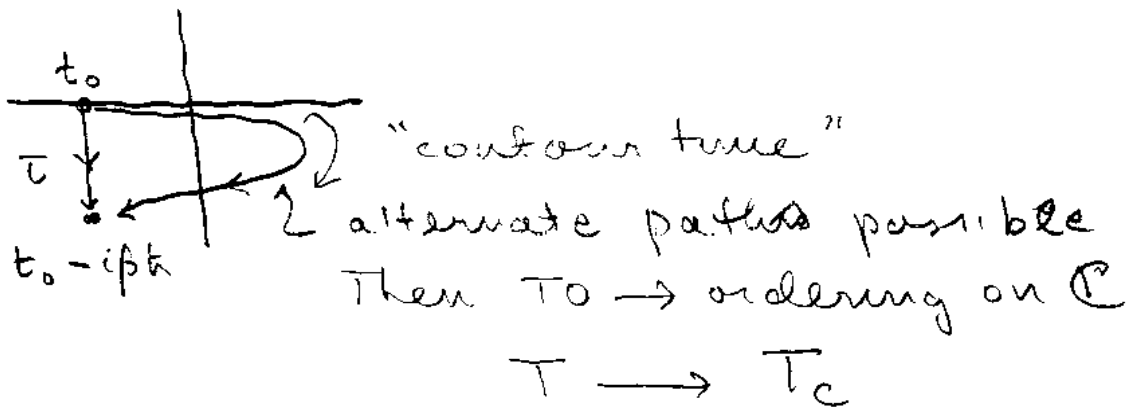 t₀
τ
"contour time"
alternate paths possible
t₀ - iβħ
Then TO → ordering on C
T → T_C